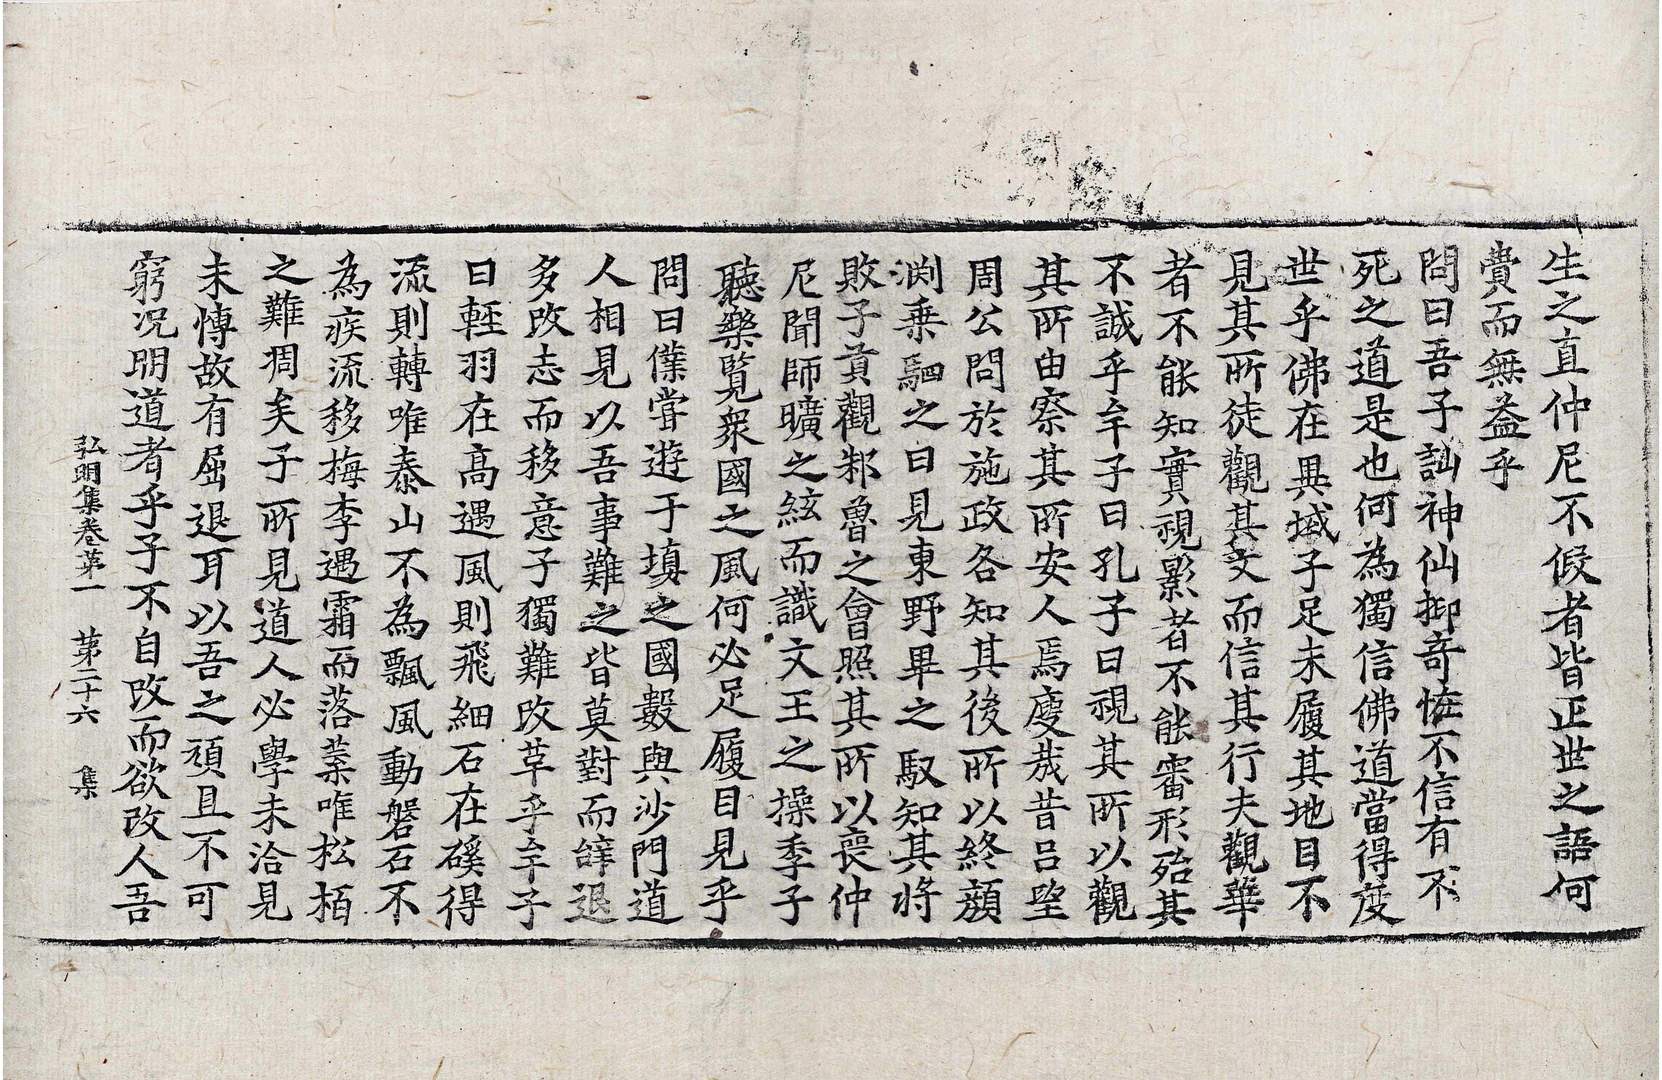 生之直仲尼不假者皆正世之語何
費而無益乎
問曰吾子訕神仙抑奇恠不信有不
死之道是也何為獨信佛道當得度
世乎佛在異域子足未履其地目不
見其所徒觀其文而信其行夫觀華
者不能知實視影者不能審形殆其
不誠乎牟子曰孔子曰視其所以觀
其所由察其所安人焉廋哉昔呂望
周公問於施政各知其後所以終顔
渕乗駟之日見東野畢之馭知其將
敗子貢觀邾魯之會照其所以喪仲
尼聞師曠之絃而識文王之操季子
聽樂覧衆國之風何必足履目見乎
問曰僕甞遊于塡之國數與沙門道
人相見以吾事難之皆莫對而辭退
多改志而移意子獨難改革乎牟子
曰輕羽在髙遇風則飛細石在磎得
流則轉唯泰山不為飄風動磐石不
為疾流移梅李遇霜而落葉唯松栢
之難凋矣子所見道人必學未洽見
未愽故有屈退耳以吾之頑且不可
窮况明道者乎子不自改而欲改人吾
弘明集卷第一　第二十六　集